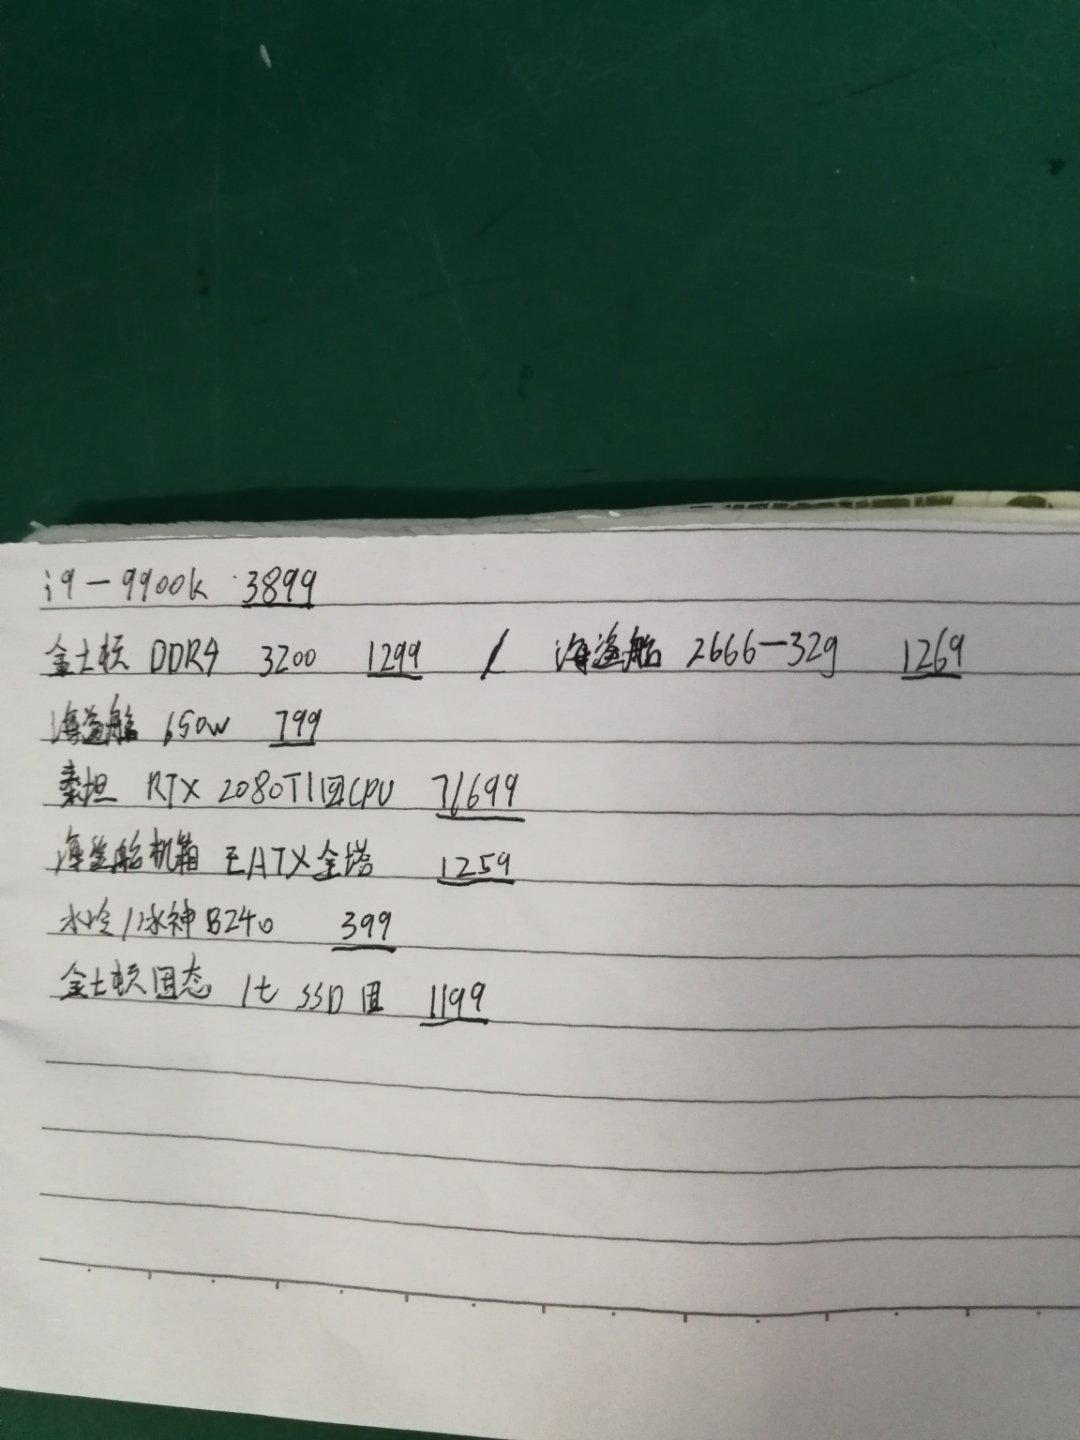 i9-9900k 3899
金士顿 DDR4 3200 1299 / 海盗船 2666-32g 1269
海盗船 650w 799
索坦 RTX 2080TI CPU 71699
海盗船机箱 EATX全塔 1259
水冷 冰神B240 399
金士顿固态 1t SSD 1199